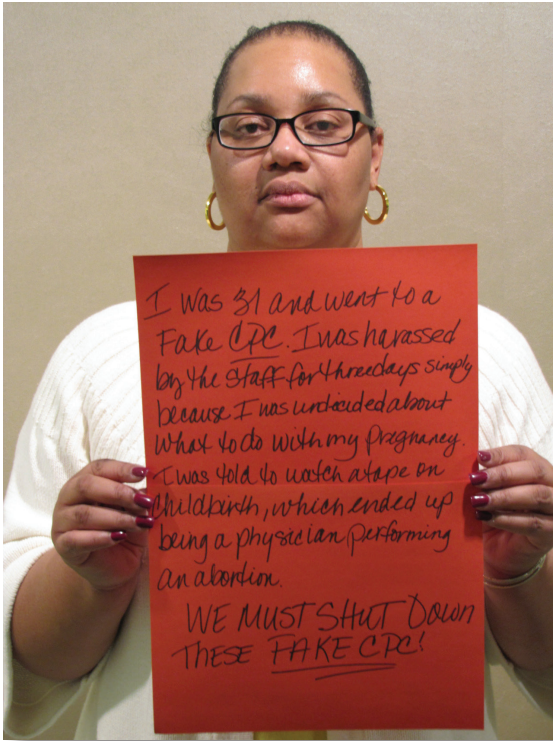 I was 31 and went to a
Fake CPC. I was harassed
by the staff for three days simply
because I was undecided about
what to do with my pregnancy.
I was told to watch a tape on
childbirth, which ended up
being a physician performing
an abortion.
WE MUST SHUT DOWN
THESE FAKE CPC!